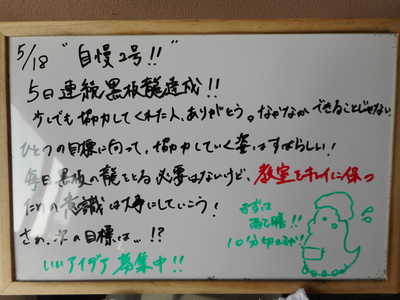 5/18 "自慢2号!!"
5日連続黒板龍達成!!
少しでも協力してくれた人、ありがとう。なかなかできることじゃない。
ひとつの目標に向って、協力していく姿はすばらしい!
毎日黒板の龍をとる必要はないけど、教室をキレイに保つ
ための意識は大事にしていこう!
さあ、次の目標は…!?
いいアイデア募集中!!
まずは
10分切るぞ!